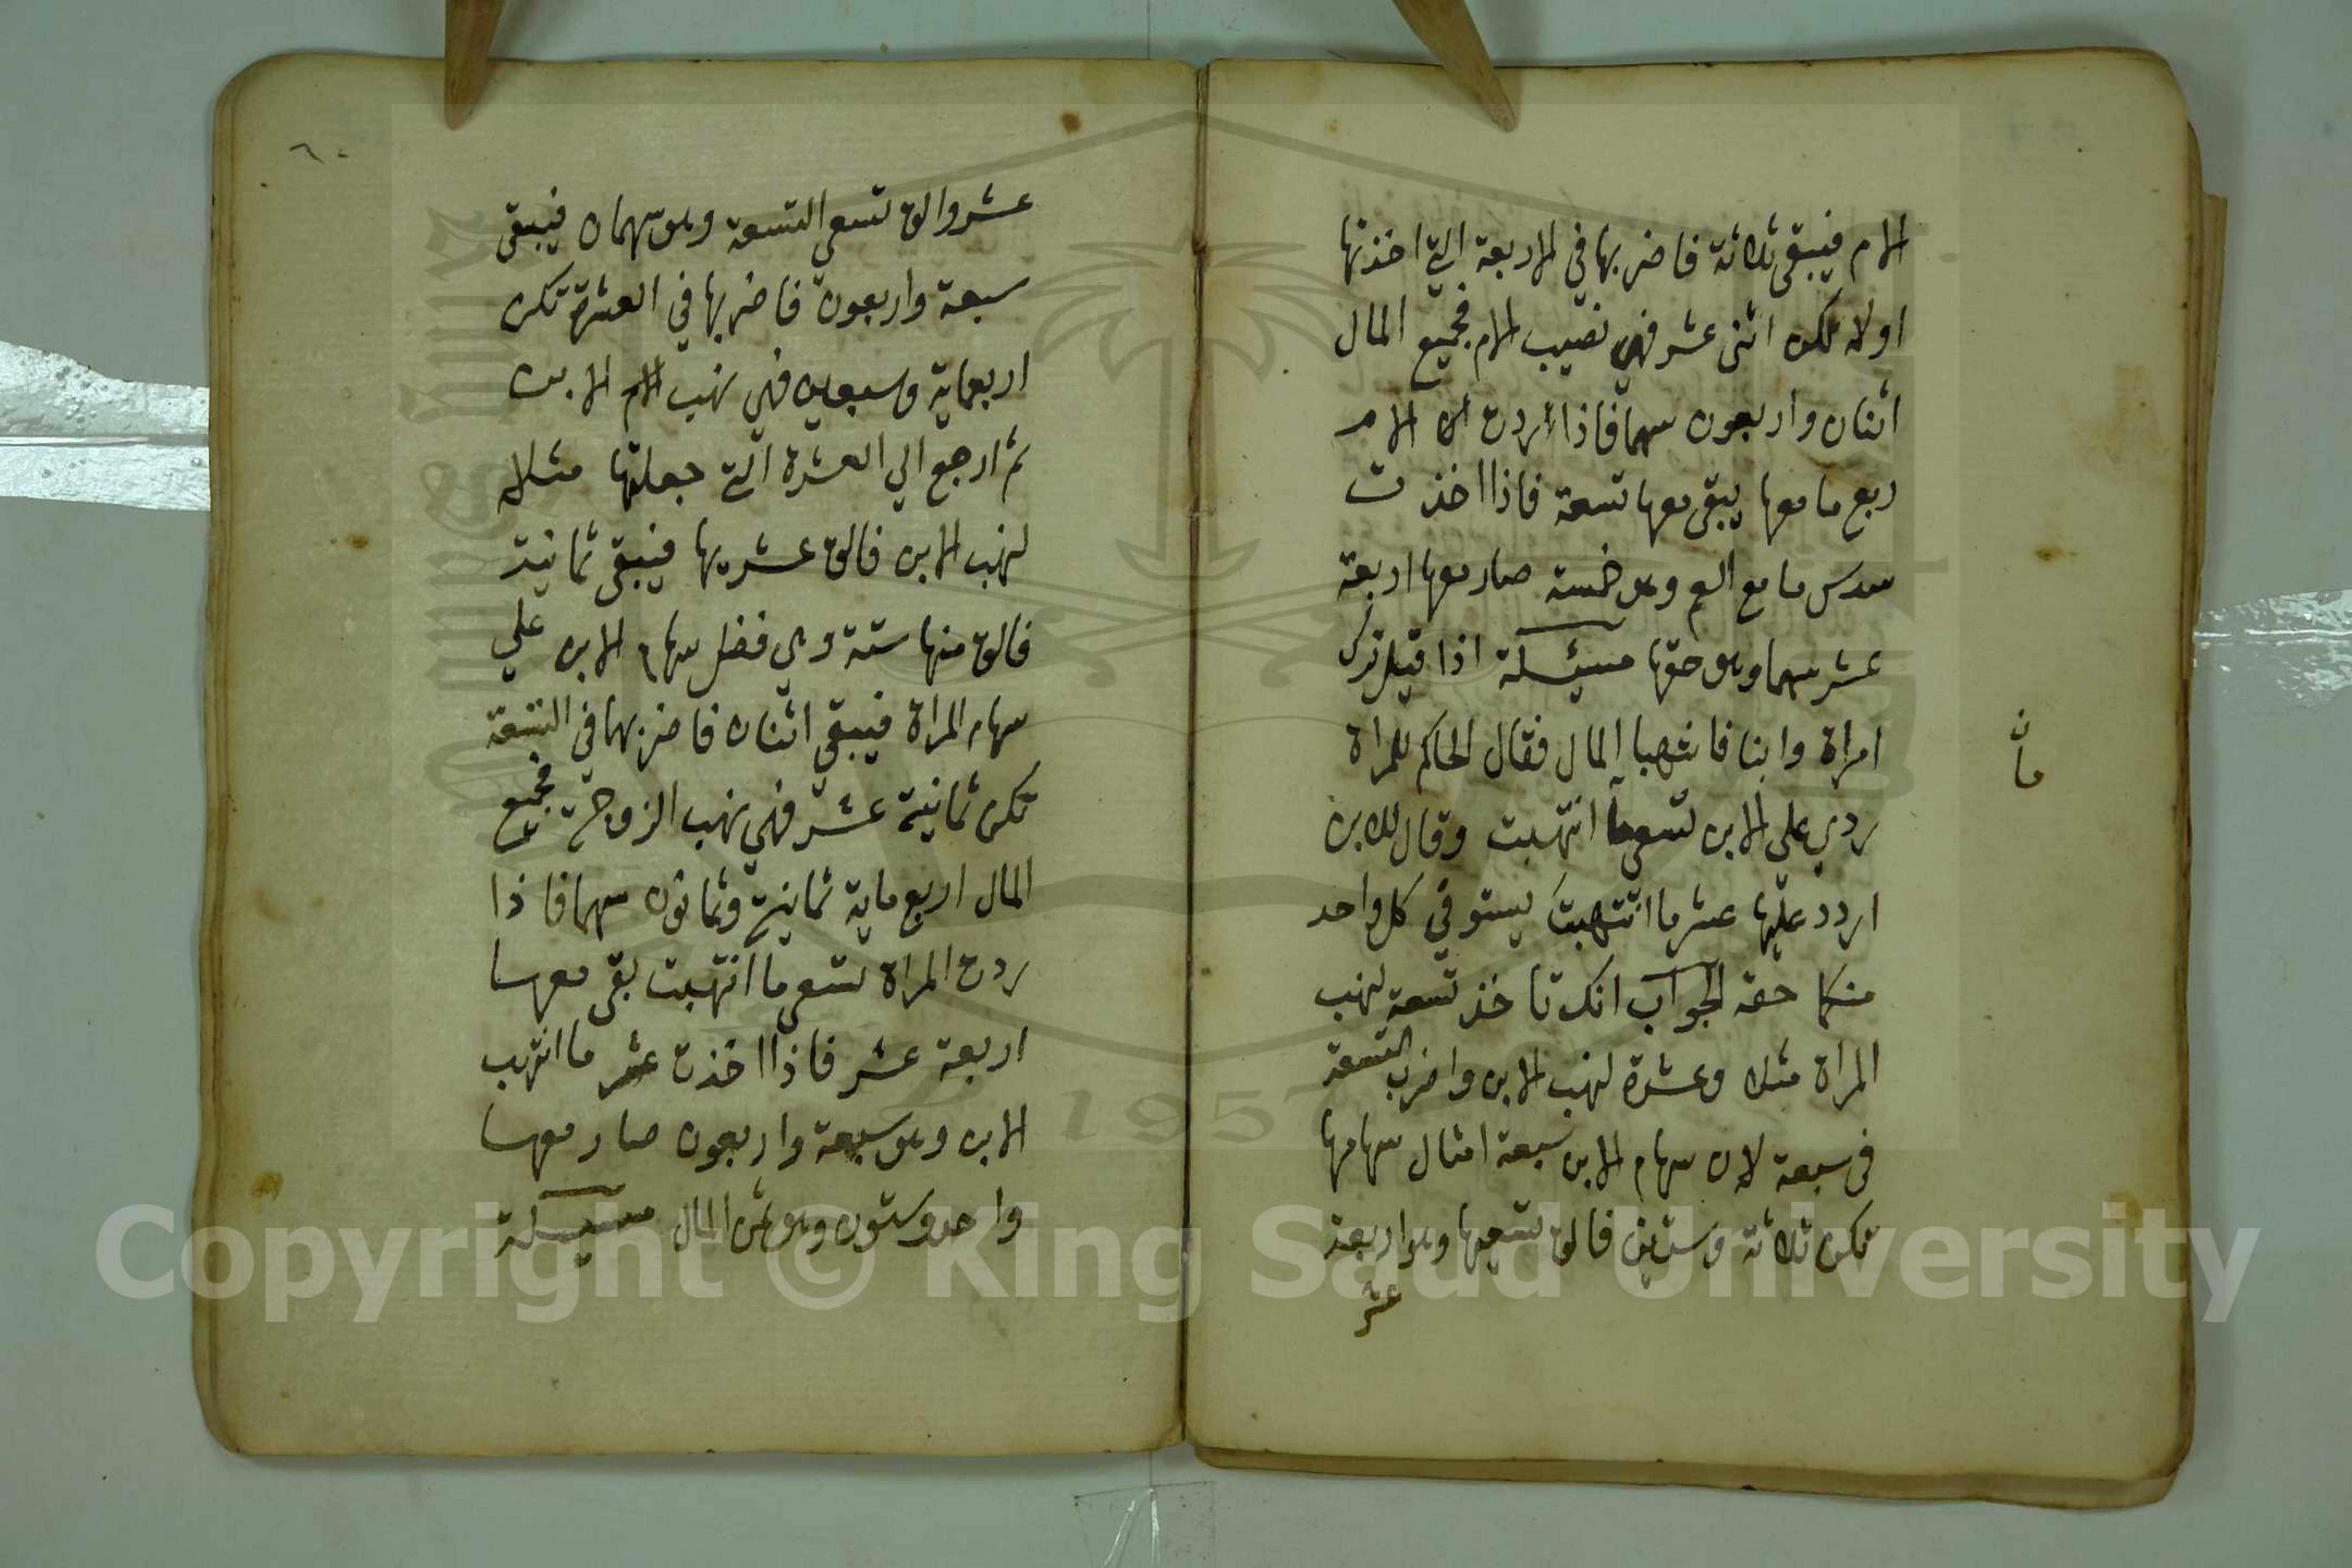 الام فيبقى ثلاثة فاضربها في الاربعة التي اخذتها
اولا تكون اثنى عشر فهي نصيب الام فجميع المال
اثنان واربعون سهما فاذا اردت الى الام
ربع ما معها يبقى معها تسعة فاذا اخذت
سدس ما مع العم وهو خمسة صار معها اربعة
عشر سهما وهو حقها مسئلة اذا قيل ترك
امراة وابنا فانتهبا المال فقال الحاكم للمراة
ردي على الابن تسعي ما انتهبت وقال للابن
اردد عليها عشر ما انتهبت يستوفي كل واحد
منكما حقه الجواب انك تاخذ تسعة لنهب
المراة مثلا وعشرة لنهب الابن واضرب التسعة
في سبعة لان سهام الابن سبعة امثال سهامها
تكن ثلاثة وستين فالق تسعيها وهو اربعة
عشر
مان
٦٠
عشر والق تسعي التسعة وهو سهمان فيبقى
سبعة واربعون فاضربها في العشرة تكن
اربعماية وسبعين فهي نهب الام الابن
ثم ارجع الي العشرة التي جعلتها مثلا
لنهب الابن فالق عشريها فيبقى ثمانية
فالق منها ستة وهي فضل سهام الابن علي
سهام المراة فيبقي اثنان فاضربهما في التسعة
تكن ثمانية عشر فهي نهب الزوجة فجميع
المال اربع ماية ثمانية وثمانون سهما فاذا
ردت المراة تسعي ما انتهبت بقى معها
اربعة عشر فاذا اخذت عشر ما انتهب
الابن وهو سبعة واربعون صار معها
واحد وستون وهو ثمن المال مسئلة
Copyright © King Saud University
1957